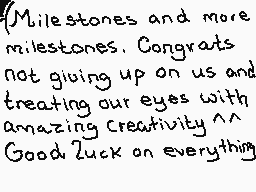 (Milestones and more
milestones. Congrats
not giving up on us and
treating our eyes with
amazing creativity ^^
Good Luck on everything